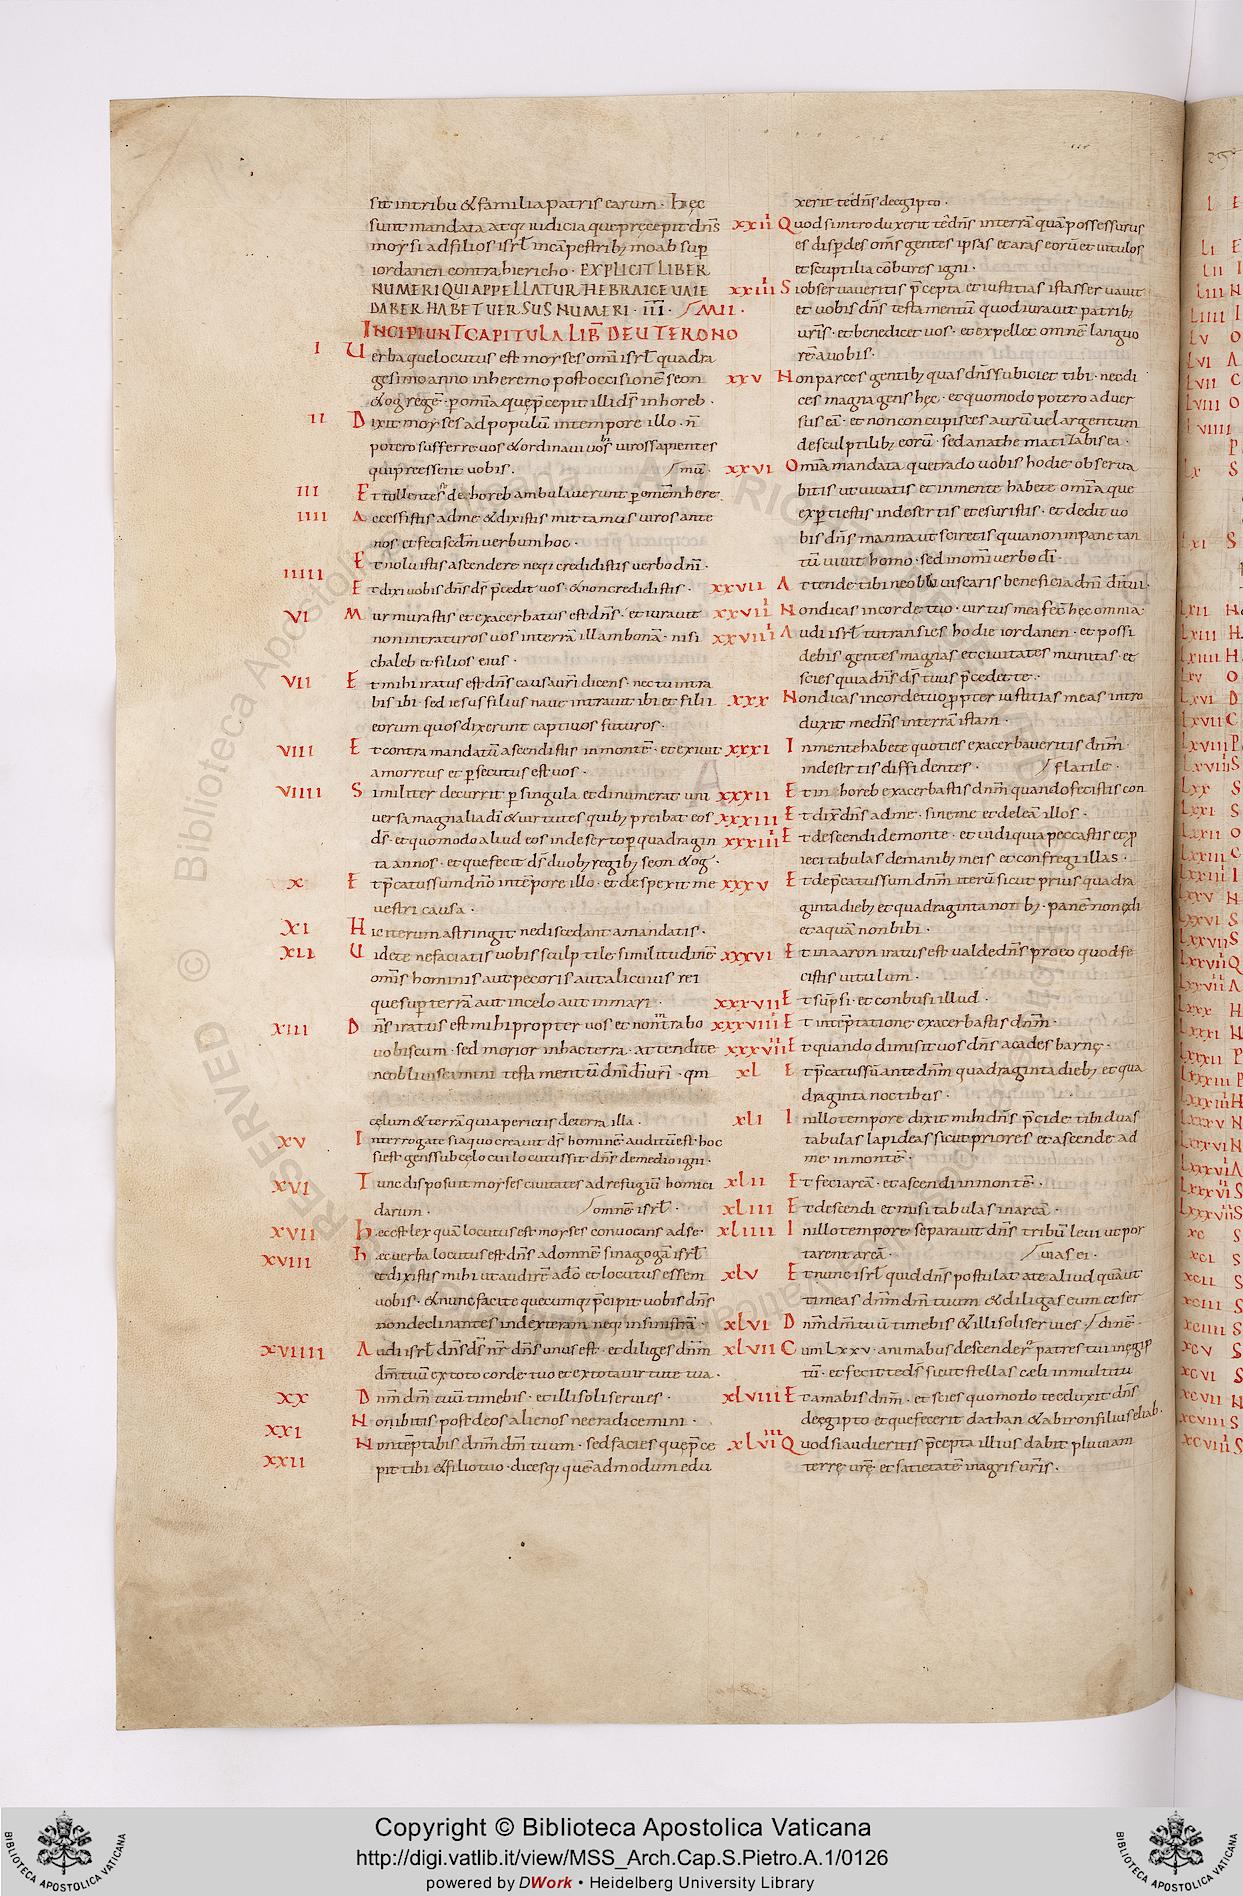 sit in tribu & familia patris earum · hęc
sunt mandata atq; iudicia que pręcepit dn̄s
moysi ad filios isrł in cāpestrib; moab sup̄
iordanen contra hiericho · EXPLICIT LIBER
NUMERI QUI APPELLATUR HEBRAICE VAIE
DABER HABET VERSUS NUMERI · III ·
INCIPIUNT CAPITULA LIB̄ DEUTERONO
I Uerba que locutus est moyses om̄i isrł quadra
gesimo anno in heremo post occisionē seon
& og regē · p om̄ia quę p̄cepit illi ds̄ in horeb ·
II Dixit moyses ad populū in tempore illo · n̄
potero sufferre uos & ordinaui uos uiros sapientes
qui preessent uobis · / mū ·
III Et tollentes de horeb ambulauerunt p omēm here
IIII Accessistis ad me & dixistis mittamus uiros ante
nos et feci sedm̄ uerbum hoc ·
IIIII Et noluistis ascendere neq; credidistis uerbo dn̄i ·
Et dixi uobis dn̄s ds̄ p̄cedit uos · & non credidistis ·
VI Murmurastis et exacerbatus est dn̄s · et iurauit
non intraturos uos in terrā illam bonā · nisi
chaleb et filios eius ·
VII Et mihi iratus est dn̄s causa uri̅ dicens · nec tu intra
bis ibi · sed iesus filius naue intrauit ibi et filii
eorum quos dixerunt captiuos futuros ·
VIII Et contra mandatū ascendistis in montē · et exiuit
amorreus et psecutus est uos ·
VIIII Similiter decurrit p singula et dinumerat uni
uersa magnalia dī & uirtutes quib; preibat eos
ds̄ · et quomodo aluid eos in deserto p quadragin
ta annos · et que fecit ds̄ duob; regib; seon & og ·
X Et p̄catus sum dn̄o intēpore illo · et despexit me
uestri causa ·
XI Hic iterum astringit ne discedant a mandatis ·
XII Uidete ne faciatis uobis sculptile similitudinē
om̄is hominis aut pecoris aut alicuius rei
que sup̄ terrā aut in celo aut in mari ·
XIII Dn̄s iratus est mihi propter uos et non intrabo
uobiscum · sed morior in hac terra · attendite
ne obliuiscimini testamentū dn̄i dī uri̅ · qm̄
cęlum & terrā quia perietis de terra illa ·
XV Interrogate si a quo creauit ds̄ hominē · auditū est hoc
si est gens sub cęlo cui locutus sit dn̄s de medio igni ·
XVI Tunc disposuit moyses ciuitates ad refugiū homici
darum · / omnē isrł ·
XVII Hęc est lex quā locutus est moyses conuocans ad se ·
XVIII Hęc uerba locutus est dn̄s ad omnē sinagogā isrł
et dixistis mihi ut audirē a dō et locutus essem
uobis · & nunc facite quecumq; p̄cipit uobis dn̄s
non declinantes in dexteram neq; in sinistrā ·
XVIIII Audi isrł dn̄s ds̄ nr̄ dn̄s unus est · et diliges dn̄m
dm̄ tuū ex toto corde tuo et ex tota uirtute tua ·
XX Dnm̄ dm̄ tuū timebis · et illi soli seruies ·
XXI Non ibitis post deos alienos nec radicemini ·
XXII Non tēptabis dnm̄ dm̄ tuum · sed facies quę p̄ce
pit tibi & filio tuo · dicesq; quēadmodum edu
xerit te dn̄s de egipto ·
Quod si introduxerit te dn̄s in terrā quā possessurus
es dispdes om̄s gentes ipsas et aras eorū et uitulos
et scuptilia cōbures igni ·
Si obseruaueritis p̄cepta et iustitias istas seruauit
et uobis dn̄s testamentū quod iurauit patrib;
uris̅ · et benedicet uos · et expellet omnē languo
rē a uobis ·
XXV Non parces gentib; quas dn̄s subiciet tibi · nec di
ces magna gens hęc · et quomodo potero aduer
sus eā · et non concupisces aurū uel argentum
de sculptilib; eorū · sed anathematilabis ea ·
XXVI Om̄ia mandata que trado uobis hodie obserua
bitis ut uiuatis et in mente habete om̄ia que
exp̄ti estis in desertis et esuristis · et dedit uo
bis dn̄s manna ut sciretis quia non in pane tan
tū uiuit homo · sed in om̄i uerbo dī ·
XXVII Attende tibi ne obliuiscaris beneficia dn̄i dī tui ·
Non dicas in corde tuo · uirtus mea fecit hec omnia ·
Audi isrł tu transies hodie iordanen · et possi
debis gentes magnas et ciuitates munitas · et
scies quia dn̄s ds̄ tuus p̄cedet te ·
XXX Non dicas in corde tuo propter iustitias meas intro
duxit me dn̄s in terrā istam ·
XXXI In mente habete quoties exacerbaueritis dnm̄ ·
in desertis diffidentes · / flatile ·
XXXII Et in horeb exacerbastis dnm̄ quando fecistis con
XXXIII Et dix̄ dn̄s ad me · sine me et deleā illos ·
Et descendi de monte · et uidi quia peccastis et pro
ieci tabulas de manib; meis et confregi illas ·
XXXV Et dep̄catus sum dnm̄ iterū sicut prius quadra
ginta dieb; et quadraginta noctib; · panē non edi
et aquā non bibi ·
XXXVI Et in aaron iratus est ualde dn̄s pro eo quod fe
cistis uitulum ·
XXXVII Et sūpsi · et conbusi illud ·
XXXVIII Et in tēptatione exacerbastis dnm̄ ·
Et quando dimisit uos dn̄s a cades barnę ·
XL Et p̄catus sū ante dnm̄ quadraginta dieb; et qua
draginta noctibus ·
XLI In illo tempore dixit mihi dn̄s p̄cide tibi duas
tabulas lapideas sicut priores et ascende ad
me in montē ·
XLII Et feci arcā · et ascendi in montē ·
XLIII Et descendi et misi tabulas in arcā ·
XLIIII In illo tempore separauit dn̄s tribū leui ut por
tarent arcā · / uias ei ·
XLV Et nunc isrł quid dn̄s postulat a te aliud quā ut
timeas dnm̄ dm̄ tuum & diligas eum et ser
XLVI Dnm̄ dm̄ tuū timebis & illi soli seruies /
XLVII Cum LXXV · animabus descendert̄ patres tui in egip
tū · et fecit te ds̄ sicut stellas cæli in multitu
XLVIII Et amabis dnm̄ · et scies quomodo te eduxit dn̄s
de ęgipto et que fecerit dathan & abiron filius eliab ·
Quod si audieritis p̄cepta illius dabit pluuiam
terrę urę̅ et satietatē in agris uris̅ ·
Copyright © Biblioteca Apostolica Vaticana
http://digi.vatlib.it/view/MSS_Arch.Cap.S.Pietro.A.1/0126
powered by DWork • Heidelberg University Library